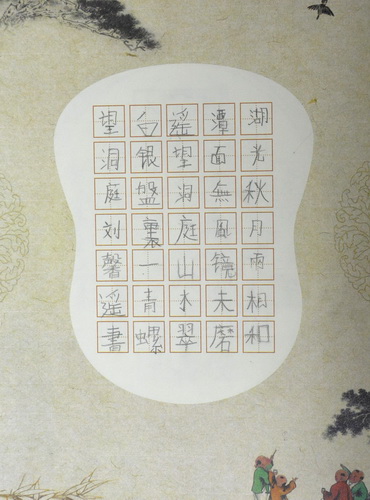 湖光秋月雨相和
潭面無風镜未磨
遥望洞庭山水翠
白银盤裏一青螺
望洞庭刘馨遥書